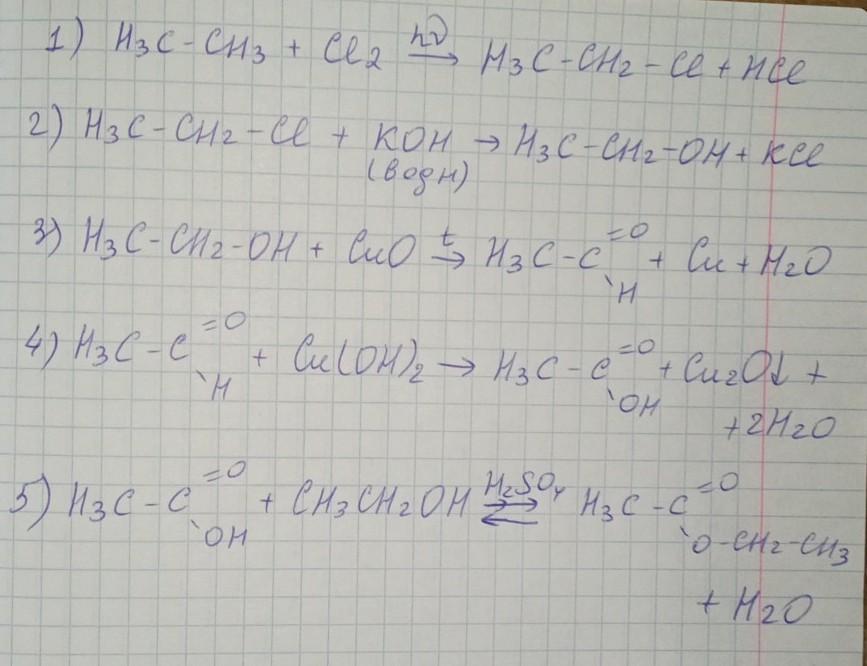 1) H3C-CH3 + Cl2 hν→ H3C-CH2-Cl + HCl
2) H3C-CH2-Cl + KOH → H3C-CH2-OH + KCl
(водн)
3) H3C-CH2-OH + CuO t→ H3C-C=O\H + Cu + H2O
4) H3C-C=O\H + Cu(OH)2 → H3C-C=O\OH + Cu2O↓ +
+2H2O
5) H3C-C=O\OH + CH3CH2OH H2SO4⇄ H3C-C=O\O-CH2-CH3
+ H2O